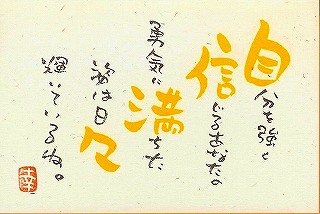 自分を強く
信じるあなたの
勇気に
満ちた
姿は日々
輝いているね。
幸